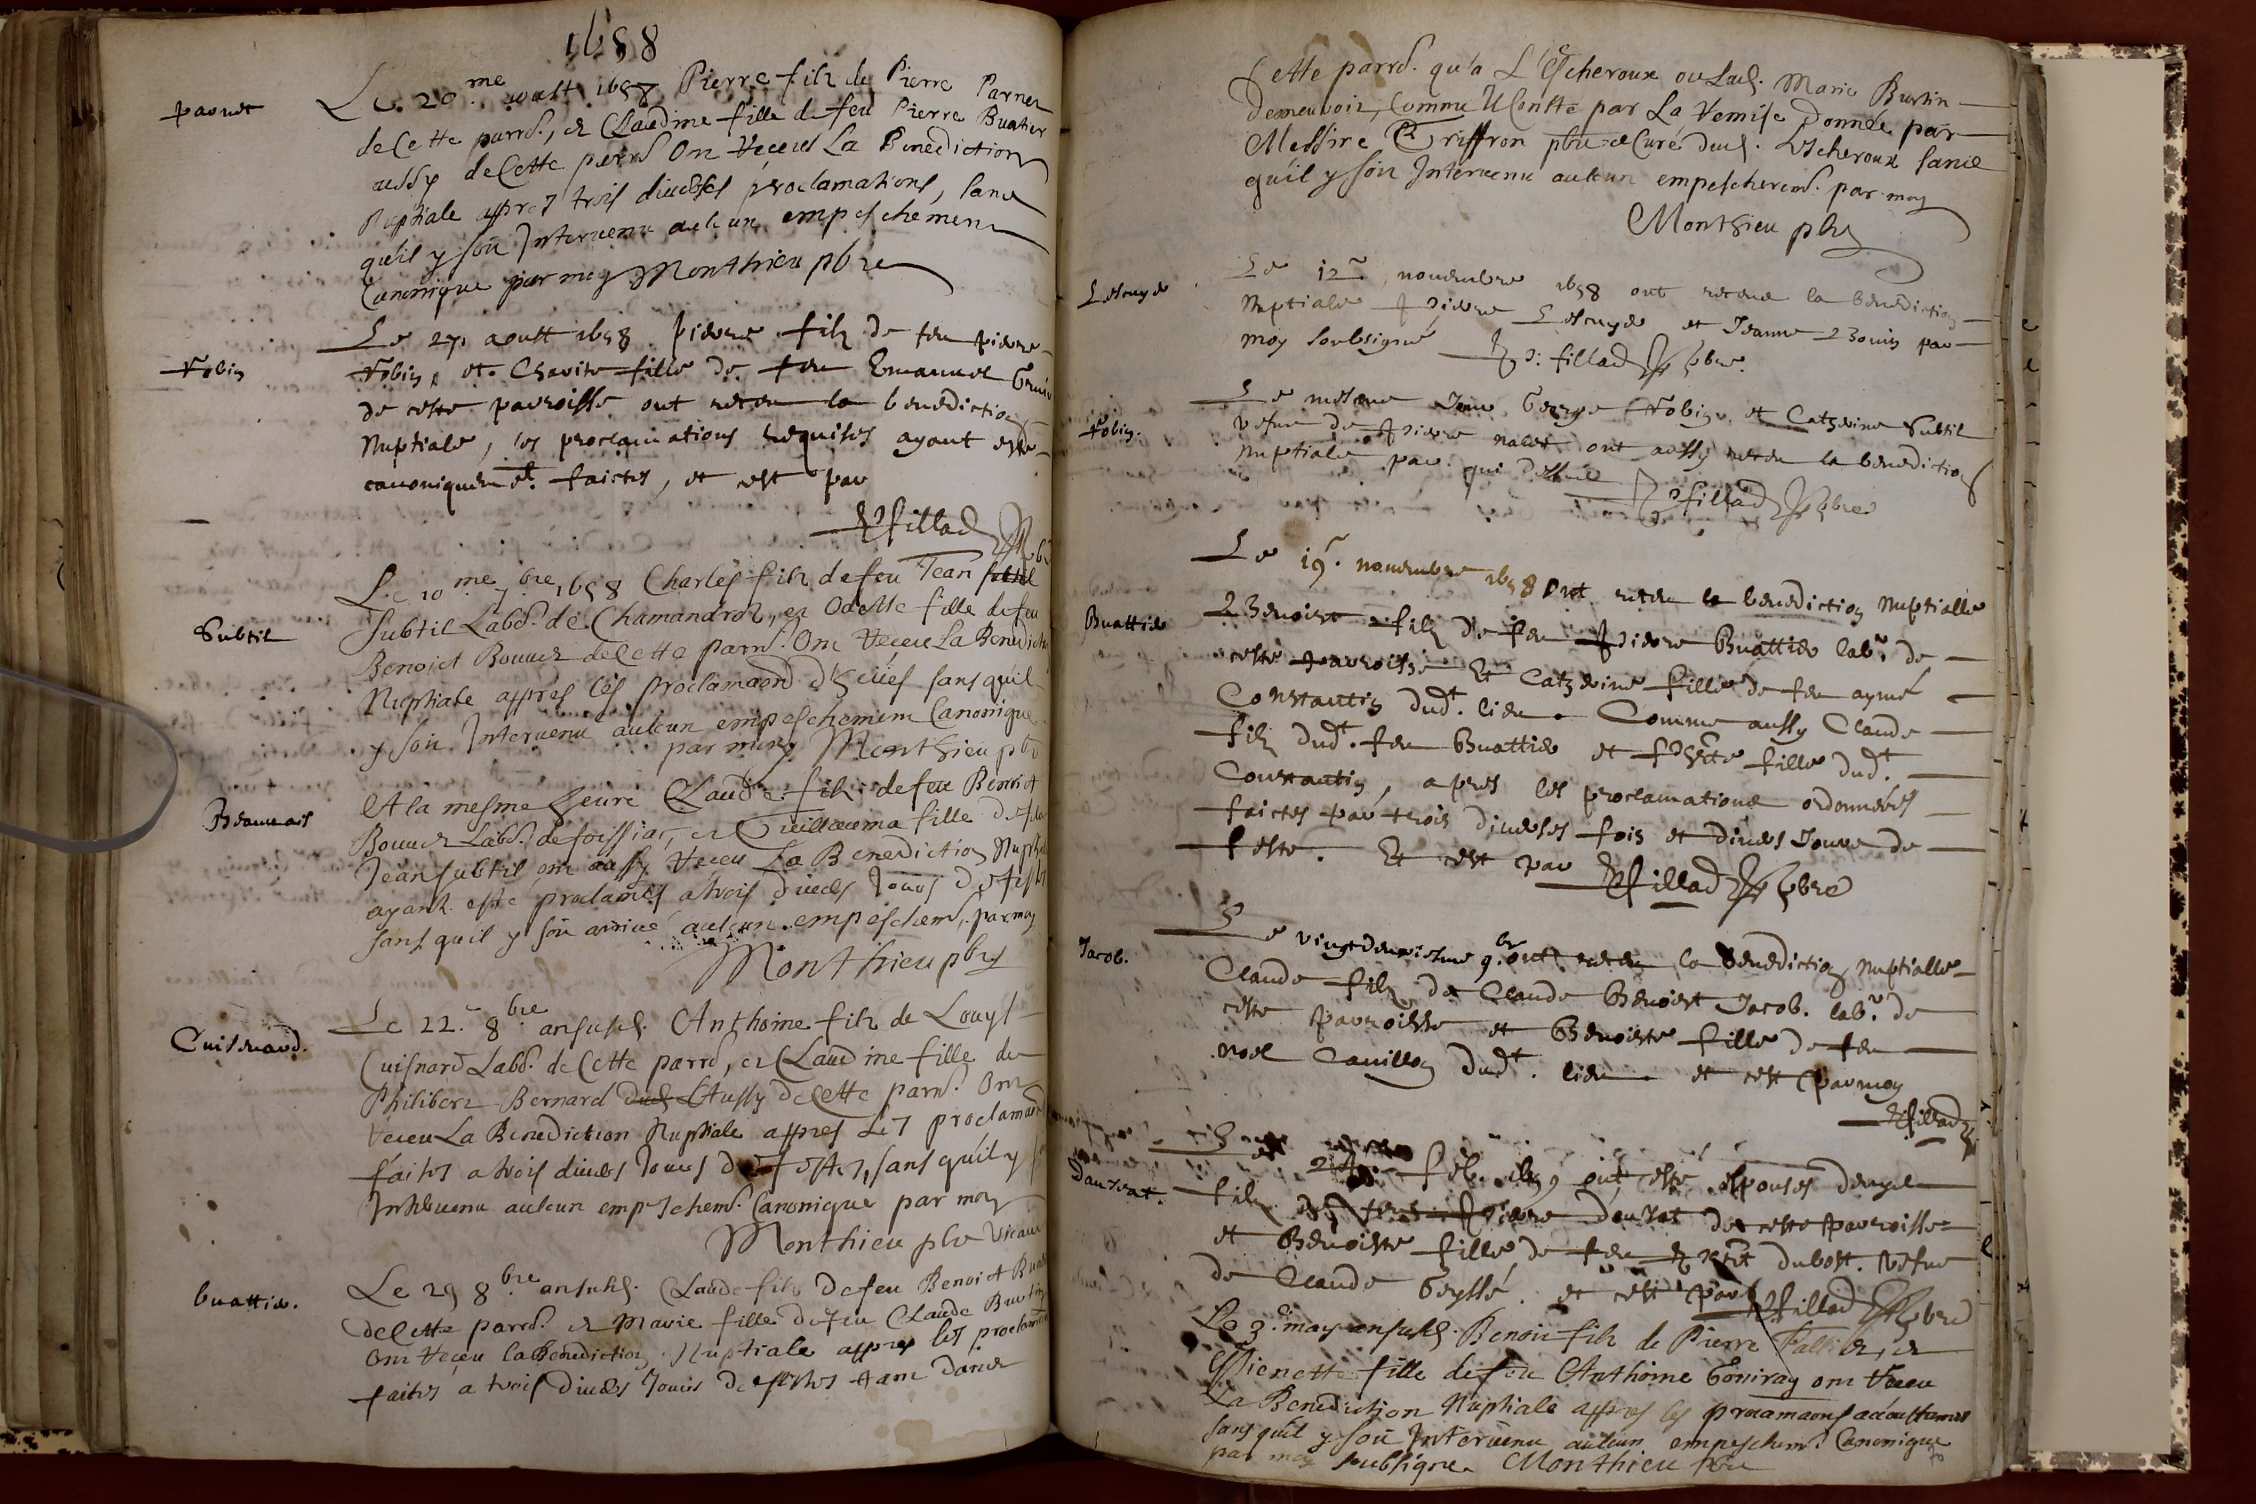 1658
Le 20.me aoust 1658 Pierre filz de Pierre
paquet
de Cette parrs., et Claudine fille de feu Pierre Buatier
aussy de Cette parrs. Ont Receu La Benediction
Nuptiale appres trois diverses proclamations, sans
qu'il y soit Intervenu aulcun empeschement
Canonique par moy Monthieu pbre
Le 27 aoust 1658 pierre filz de feu pierre
Robin
Robin, et Clavite fille de feu Emanuel
de ceste parroisse ont receu la benediction
Nuptiale, les proclamations requises ayant esté
canoniquemt. faictes, et cest par
fillad
Le 10.me 7.bre 1658 Charles filz de feu Jean
Subtil
Subtil Labr. de Chamandrol, et Odette fille de feu
Benoict Bouuer de Cette parrs. Ont Receu La Benedicti
Nuptiale appres les proclamaons sans qu'il
y soit Intervenu aulcun empeschement Canonique
par moy Monthieu pbr
A la mesme heure Claude filz de feu Benoict
Beauuais
Bouuer Labr. de foissiac, et Guillauma fille de feu
Jean subtil ont aussy Receu La Benediction Nupti
ayant esté proclamés a trois divers Jours de feste
sans qu'il y soit arrivé aulcun empeschemt. par moy
Monthieu pbr
Le 22. 8bre ansusd. Anthoine filz de Louys
Cuisenard.
Cuisnard Labr. de Cette parrs, et Claudine fille de
Philibert Bernard Aussy de Cette parrs. Ont
Receu La Benediction Nuptiale appres Les proclamaon
faites a trois divers Jours de festes, sans qu'il y
Intervenu aulcun empeschemt. Canonique par moy
Monthieu pbr Vicaire
Le 29 8bre ansusd. Claude filz de feu Benoict
buattier.
de Cette parrs. et Marie fille de feu Claude Burtin
Ont Receu la Benediction Nuptiale appres les proclama
faites a trois divers Jours de festes tant dans
Cette parrs. qu'a L'Escheroux ou Lad. Marie Burtin
Demeuroit, Comme Il Conste par La Remise Donnée par
Messire Griffon pbre et Curé dud. Lescheroux sans
qu'il y soit Intervenu aulcun empeschement. par moy
Monthieu pbr
Le 12e novembre 1658 ont receu la benediction
Lescuyer
Nuptiale pierre Lescuyer et Jeanne par
moy soubsigné fillad pbre.
Le mesme Jour George Robin et Catherine Subtil
Robin.
vefve de pierre ont aussy receu la benediction
Nuptiale par qui dessus fillad pbre
Le 19e. novembre 1658 Ont receu la benediction Nuptialle
Buattier
Benoist filz de feu pierre Buattier labr. de
ceste parroisse Et Catherine fille de feu aymé
Constantin dudt. lieu. Comme aussy Claude
filz dudt. feu Buattier et fille dudt.
Constantin, apres les proclamations ordonnées
faictes par trois diverses fois et divers Jours de
feste. Et cest par fillad pbre
Le vingt deuxiesme 9.br ont receu la benediction Nuptialle
Jacob.
Claude filz de Claude Benoist Jacob. labr. de
ceste parroisse et Benoiste fille de feu
noel Cavillon dudt. lieu. et cest par moy
fillad
Dauvat.
ont esté espouses
filz pierre Dauvat de ceste parroisse
et Benoiste fille de feu dubost. vefve
de Claude Geyssé. et cest par fillad pbre
Le 3. may ansusd. Benoit filz de Pierre et
Estienette fille de feu Anthoine Goniray ont Receu
La Benediction Nuptiale appres les procamaons accoustumes
sans qu'il y soit Intervenu aulcun empeschemt. Canonique
par moy soubsigne. Monthieu pbr